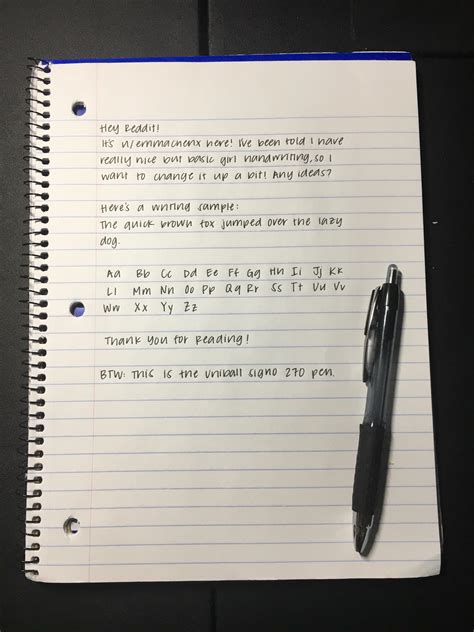 Hey Reddit!
It's u/emmachenx here! I've been told I have
really nice but basic girl handwriting, so I
want to change it up a bit! Any ideas?
Here's a writing sample:
The quick brown fox jumped over the lazy
dog.
Aa Bb Cc Dd Ee Ff Gg Hh Ii Jj Kk
Ll Mm Nn Oo Pp Qq Rr Ss Tt Uu Vv
Ww Xx Yy Zz
Thank you for reading!
BTW: This is the uniball signo 270 pen.